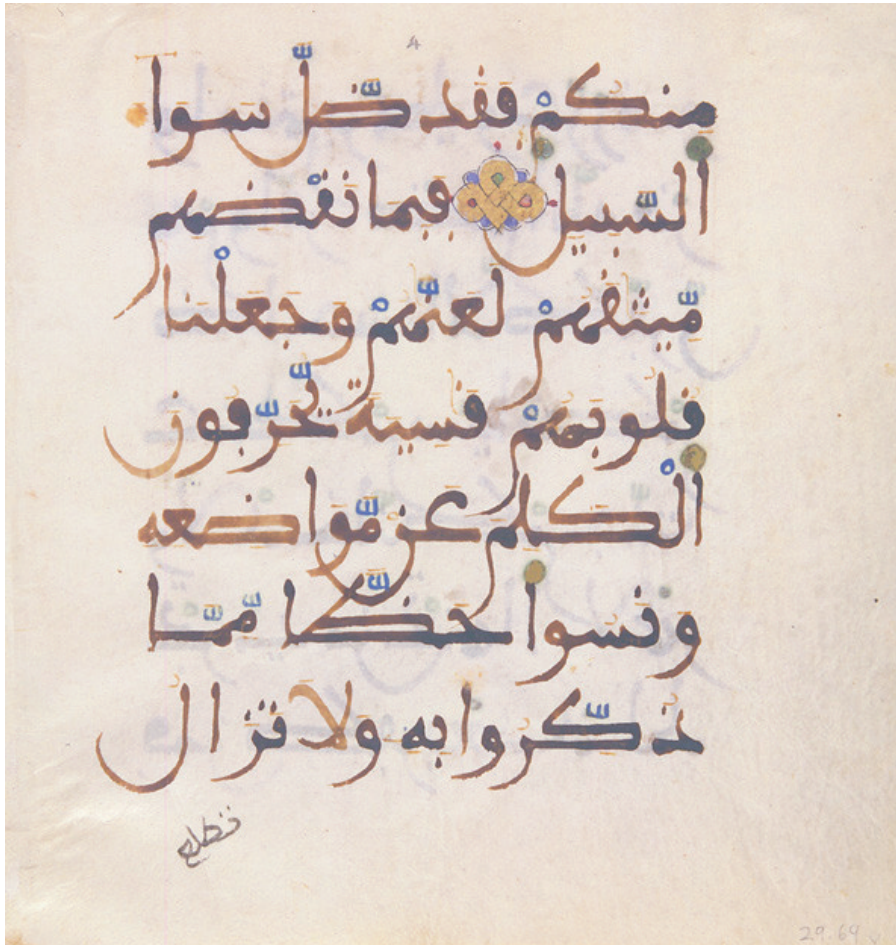 4
منكم فقد ضل سوا
السبيل فبما نقضهم
ميثقهم لعنهم وجعلنا
قلوبهم قسية يحرفون
الكلم عن مواضعه
ونسوا حظا مما
ذكروا به ولا تزال
تطلع
29.69